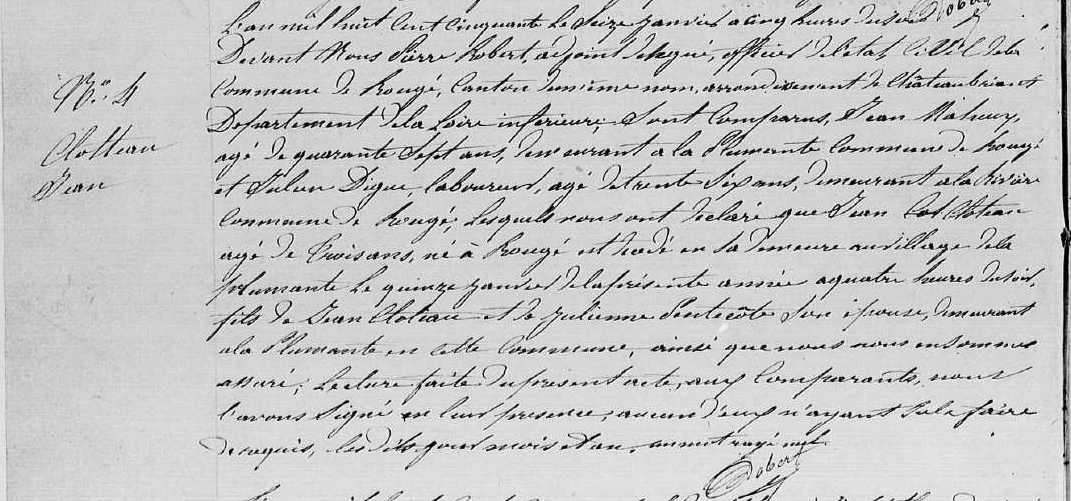 L'an mil huit cent cinquante le seize janvier a cinq heures du soir
Devant Nous Pierre Robert, adjoint délégué, officier de l'état civil de la
N.º 4
Commune de Rougé, Canton du même nom, arrondissement de Châteaubriant
Departement de la Loire inferieure, Sont Comparus, Jean Maheux,
Clotteau
agé de quarante Sept ans, demeurant a la Plumante Commune de Rougé
Jean
et Julien Digue, laboureur, agé de trente Six ans, demeurant a la Rivière
Commune de Rougé, Lesquels nous ont déclaré que Jean Cloteau
agé de Trois ans, né à Rougé est décédé en sa demeure au village de la
plumante Le quinze janvier de la présente année a quatre heures du soir,
fils de Jean Cloteau et de Julienne Pentecôte Son épouse, demeurant
a la Plumante en cette Commune, ainsi que nous nous en sommes
assuré; Lecture faite du present acte, aux Comparants, nous
l'avons Signé en leur presence, aucun d'eux n'ayant Sule faire
de requis, les dits jour mois et an, un mot rayé nul.
Robert